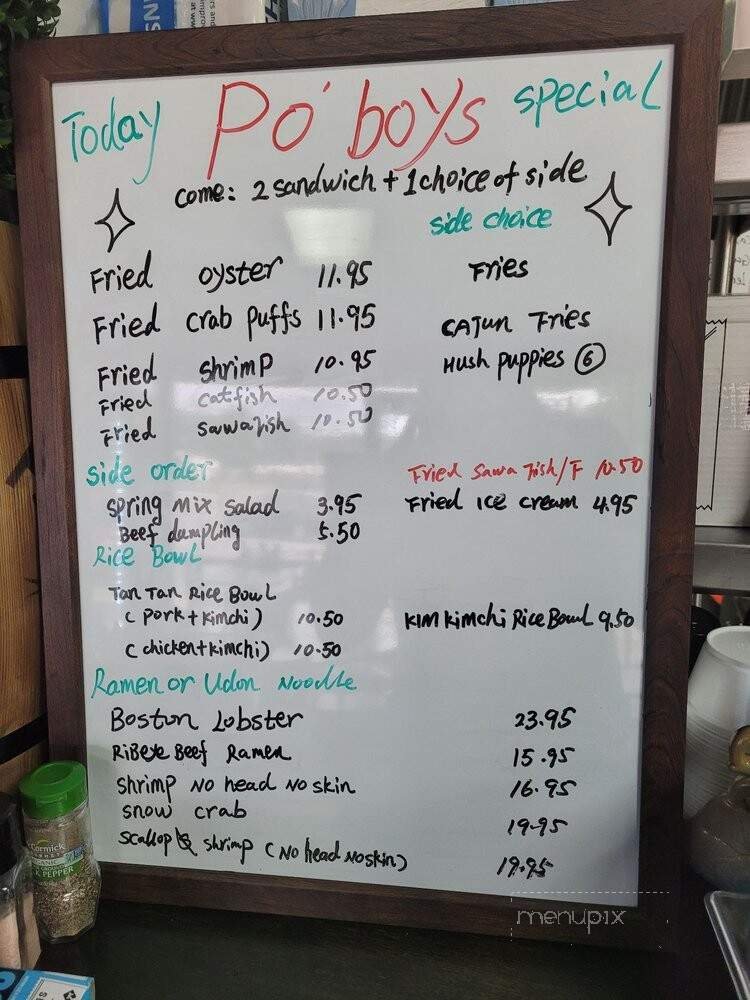 Today Po' boys special
come: 2 sandwich + 1 choice of side
side choice
Fried oyster 11.95
Fries
Fried crab puffs 11.95
CAJUN Fries
Fried shrimp 10.95
Hush puppies 6
Fried catfish 10.50
Fried sawafish 10.50
side order
Fried sawafish/F 10.50
spring mix salad 3.95
Fried Ice cream 4.95
Beef dumpling 5.50
Rice Bowl
Tan Tan Rice Bowl
(pork+kimchi) 10.50
KIM Kimchi Rice Bowl 9.50
(chicken+kimchi) 10.50
Ramen or Udon Noodle
Boston Lobster 23.95
RiBeye Beef Ramen 15.95
shrimp No head No skin 16.95
snow crab 19.95
scallop & shrimp (No head No skin) 19.95
McCormick
PEPPER
menupix